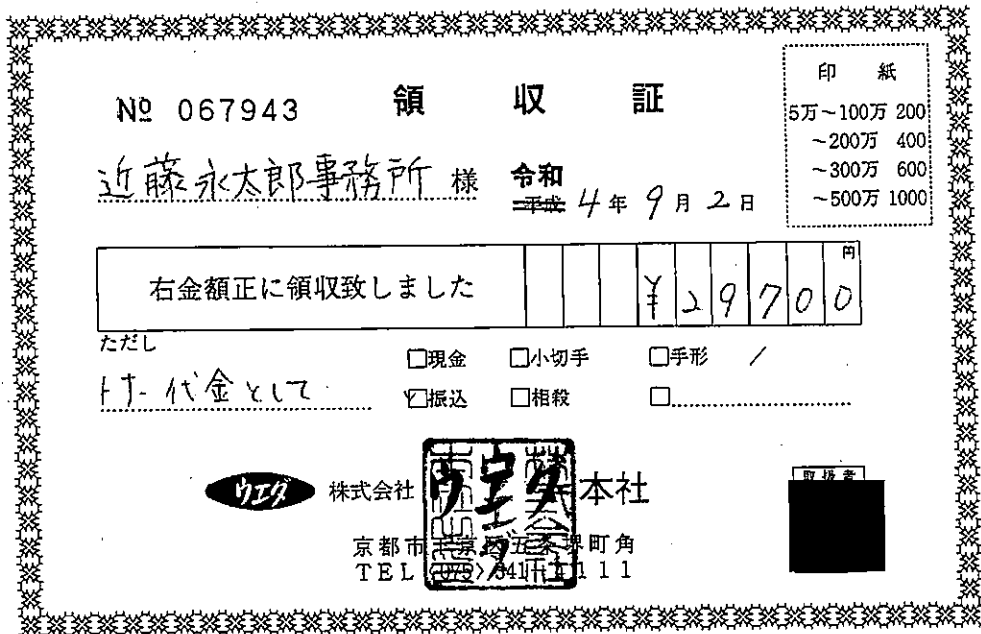 № 067943 領収証
印紙
5万～100万 200
～200万 400
～300万 600
～500万 1000
近藤永太郎事務所 様
令和
平成 4年 9月 2日
右金額正に領収致しました ¥29700円
ただし
トナー代金として
□現金 □小切手 □手形
☑振込 □相殺 □
ウエダ 株式会社ウエダ本社
京都市下京区五条堺町角
TEL (075) 341-4111
取扱者